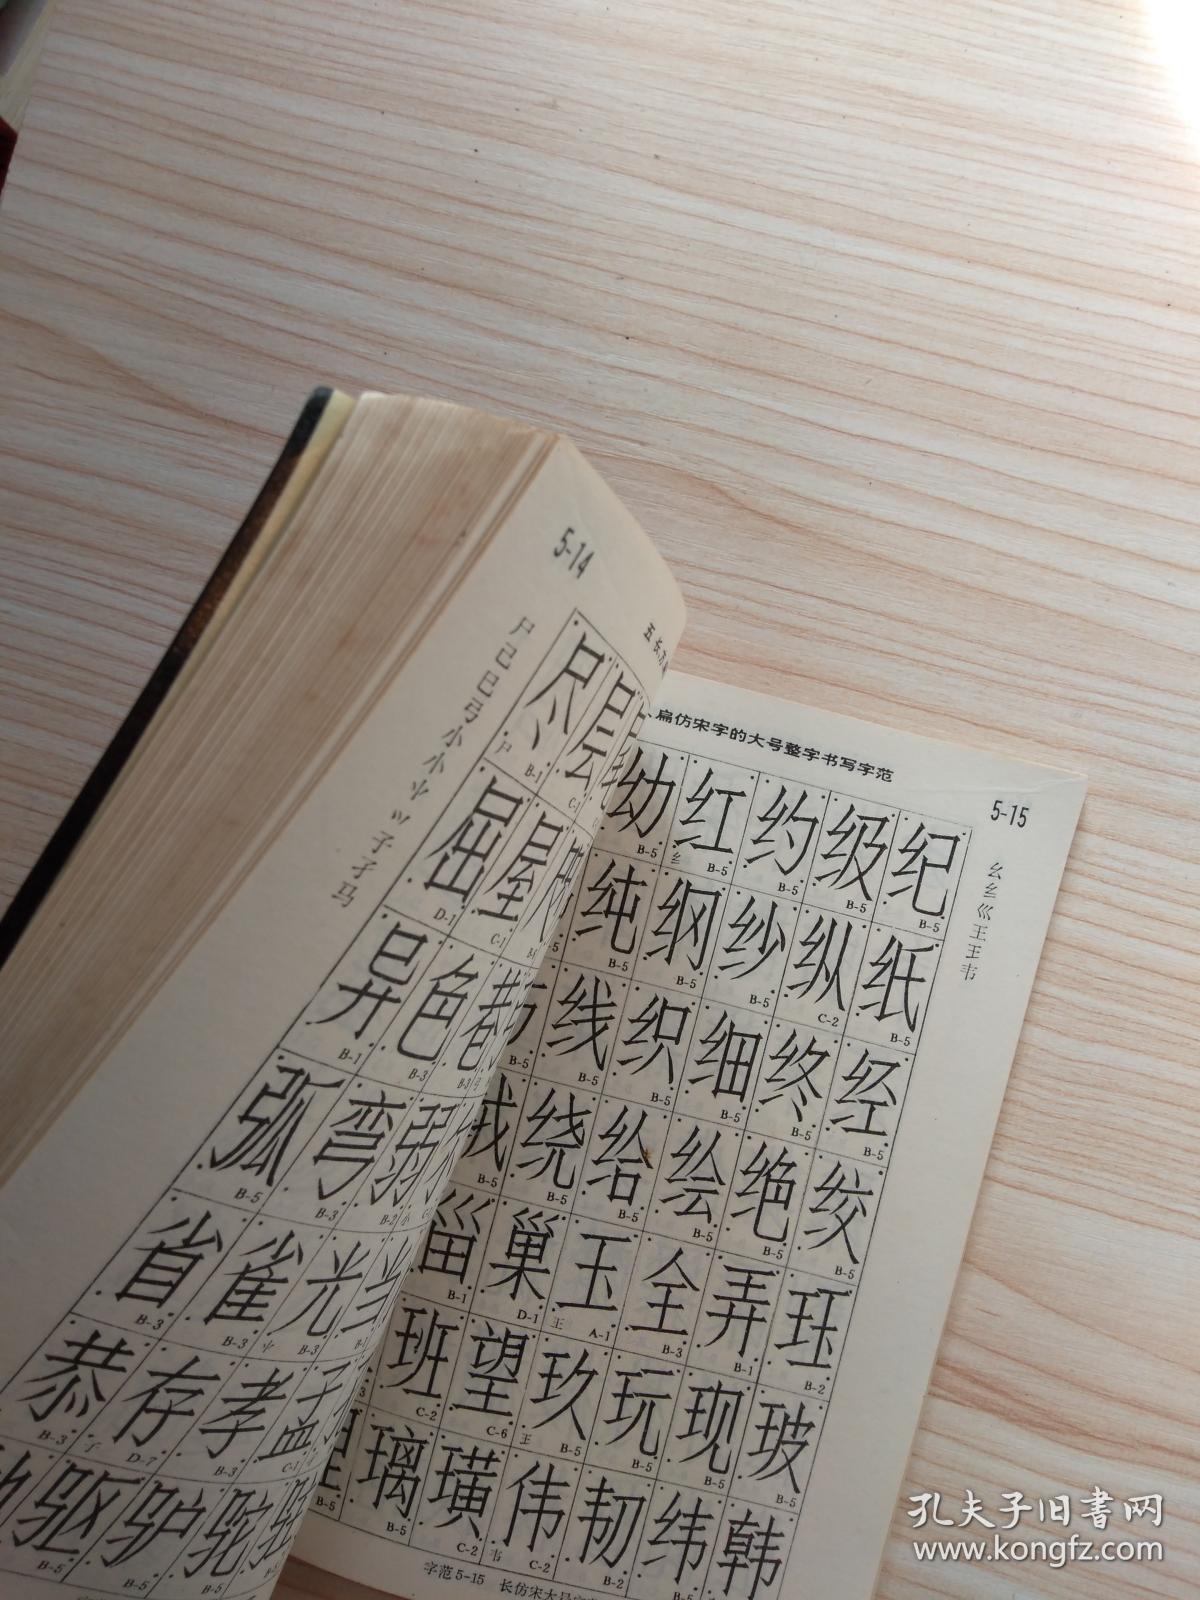 5-14
尸己巳弓小⺌⺍子孑马
五 长方
尽 层
尸 B-1 C-1
屈 屋
D-1 C-1
异 色 巷
B-1 B-3 B-3
弧 弯 弱
B-5 B-3 B-2
省 雀 光 当
B-3 B-3 B-3 B-1
恭 存 孝 孟
B-3 D-7 B-3 C-1
驱 驴 驼
B-5 B-5 B-5
扁仿宋字的大号整字书写字范
5-15
幺纟巛王王韦
幼 红 约 级 纪
B-5 B-5 B-5 B-5 B-5
纯 纲 纱 纵 纸
B-5 B-5 B-5 C-2 B-5
线 织 细 终 经
B-5 B-5 B-5 B-5 B-5
绒 绕 给 绘 绝 绞
B-5 B-5 B-5 B-5 B-5 B-5
甾 巢 玉 全 弄 珏
B-1 D-1 A-1 B-3 B-1 B-2
班 望 玖 玩 现 玻
C-2 C-6 B-5 B-5 B-5 B-5
璃 璜 伟 韧 纬 韩
B-5 C-2 C-2 B-2 B-5
字范5-15 长仿宋大号字
孔夫子旧书网
www.kongfz.com